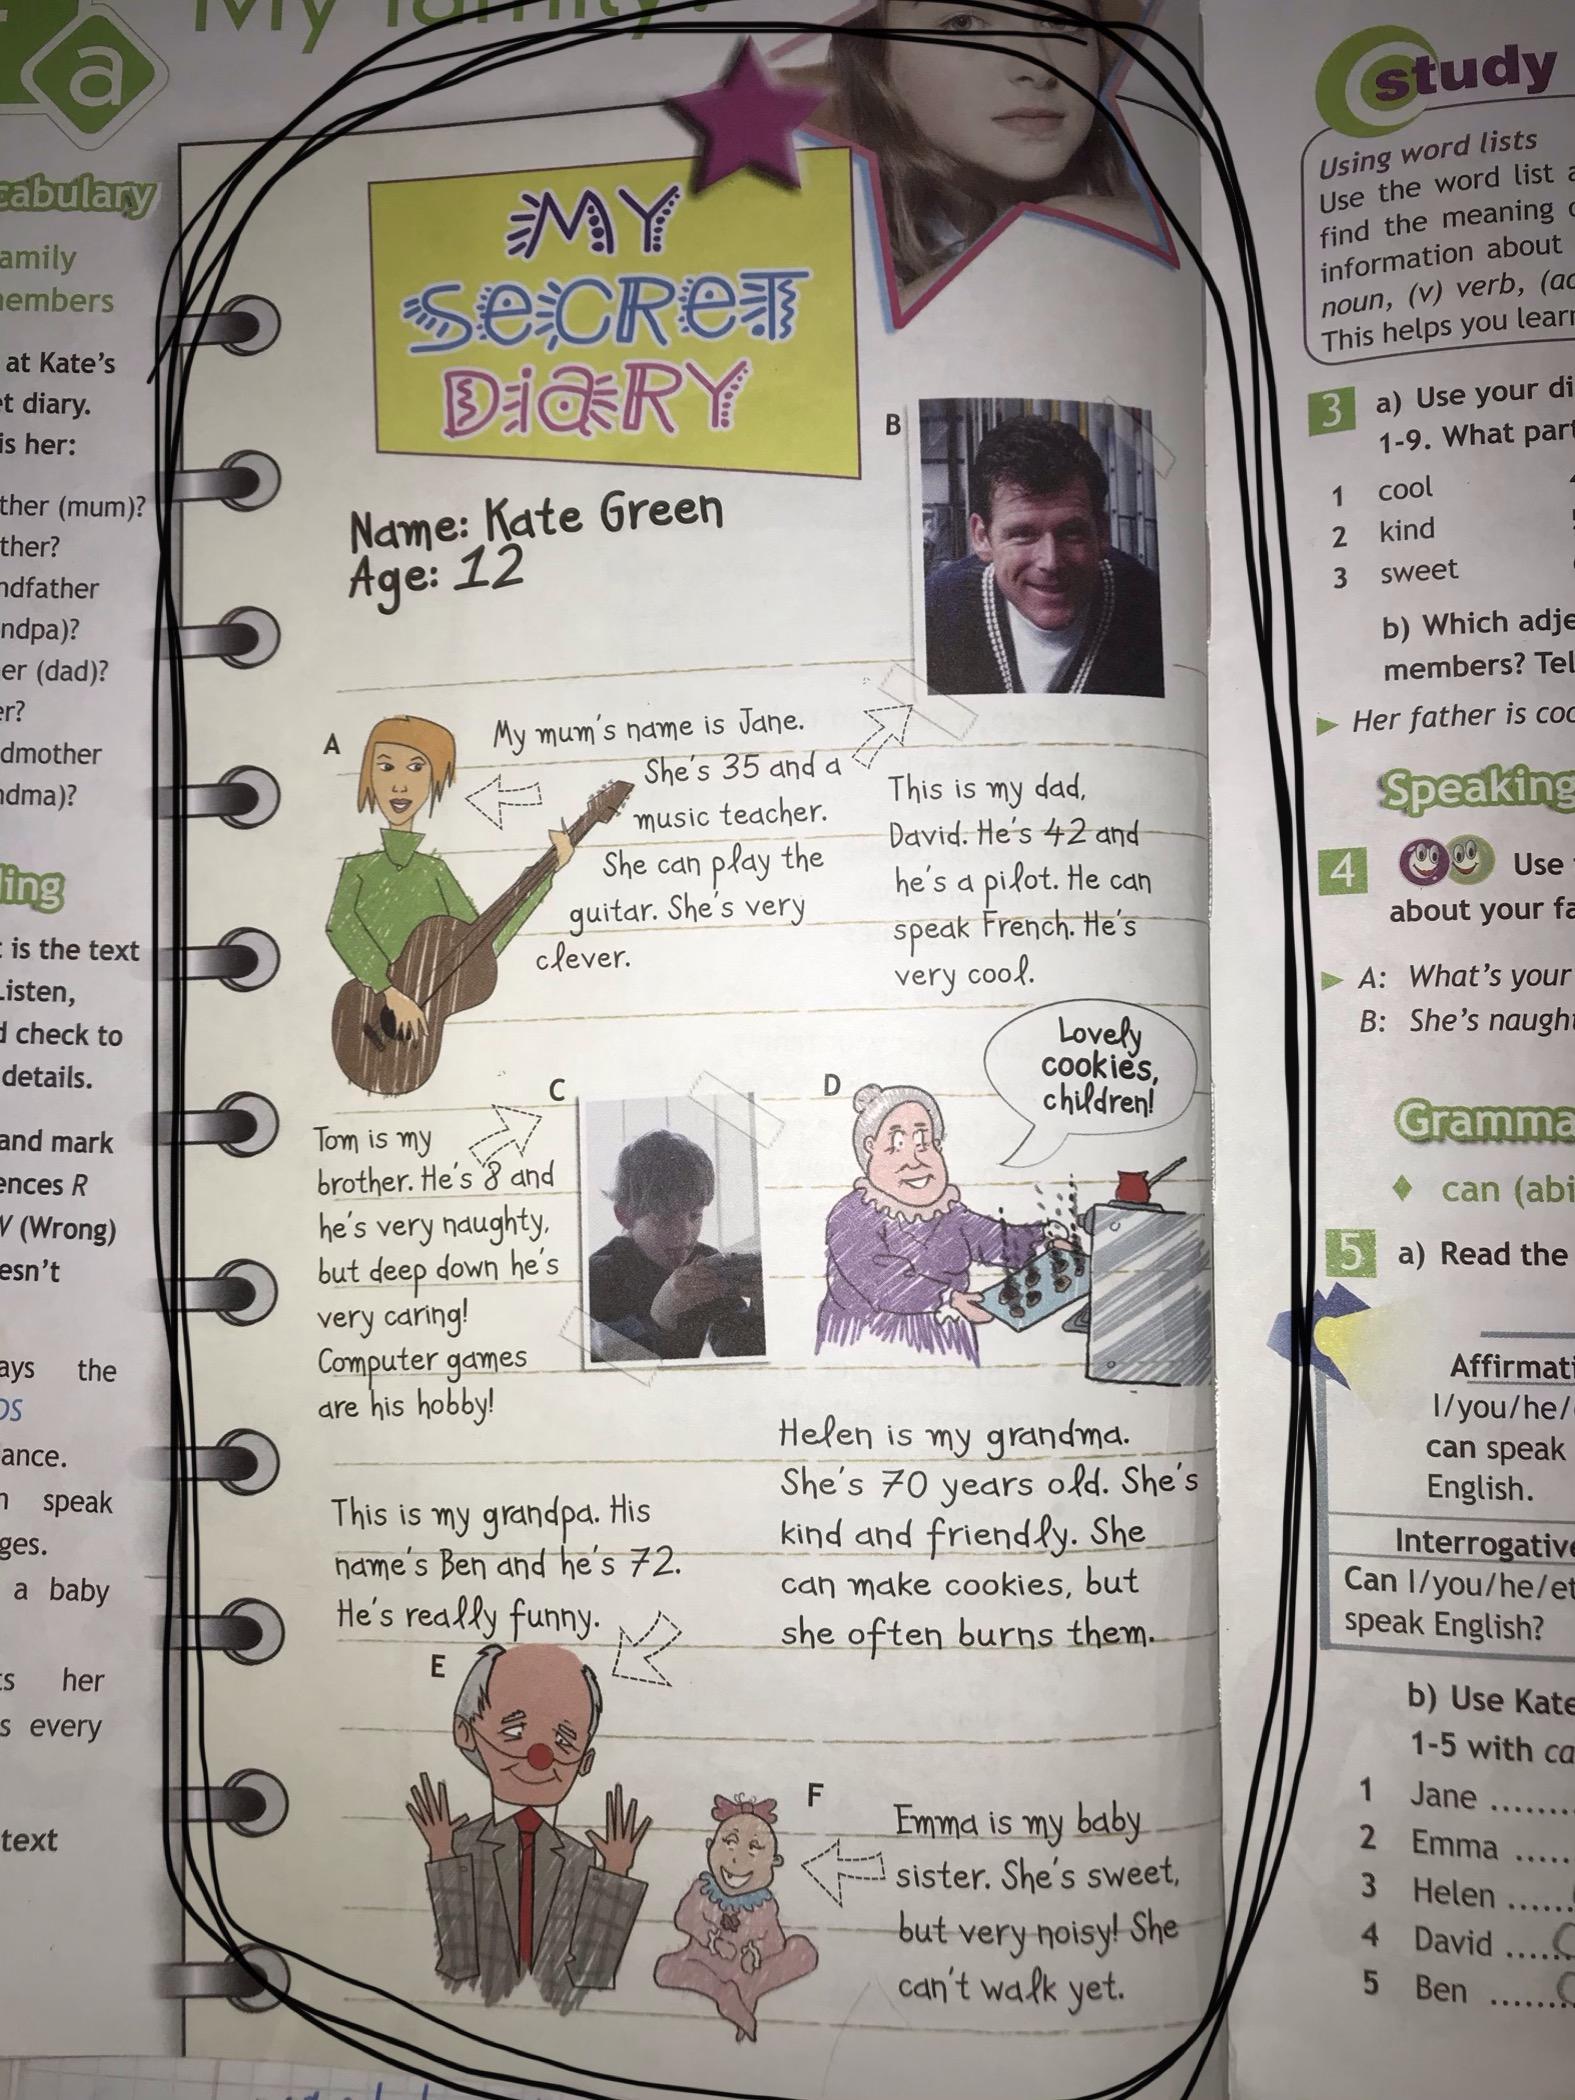 My family!
a
cabulary
amily
embers
at Kate's
t diary.
is her:
ther (mum)?
ther?
ndfather
ndpa)?
er (dad)?
er?
dmother
dma)?
ing
is the text
Listen,
check to
details.
and mark
ences R
(Wrong)
esn't
ays the
DS
ance.
speak
ges.
a baby
s her
s every
text
MY
SECRET
DIARY
Name: Kate Green
Age: 12
A
My mum's name is Jane.
She's 35 and a
music teacher.
She can play the
guitar. She's very
clever.
B
This is my dad,
David. He's 42 and
he's a pilot. He can
speak French. He's
very cool.
C
Tom is my
brother. He's 8 and
he's very naughty,
but deep down he's
very caring!
Computer games
are his hobby!
D
Lovely
cookies,
children!
Helen is my grandma.
She's 70 years old. She's
kind and friendly. She
can make cookies, but
she often burns them.
This is my grandpa. His
name's Ben and he's 72.
He's really funny.
E
F
Emma is my baby
sister. She's sweet,
but very noisy! She
can't walk yet.
study
Using word lists
Use the word list a
find the meaning
information about
noun, (v) verb, (ad
This helps you learn
3 a) Use your di
1-9. What part
1 cool
2 kind
3 sweet
b) Which adje
members? Tel
Her father is coo
Speaking
4 Use
about your fa
A: What's your
B: She's naught
Gramma
can (abi
5 a) Read the
Affirmati
I/you/he/
can speak
English.
Interrogative
Can I/you/he/et
speak English?
b) Use Kate
1-5 with ca
1 Jane ........
2 Emma .....
3 Helen ......
4 David .....
5 Ben .......